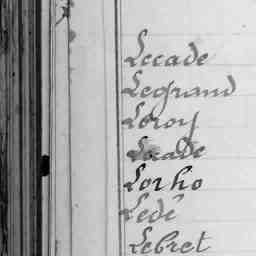 Lecade
Legrand
Leroy
Lorho
Ledé
Lebret